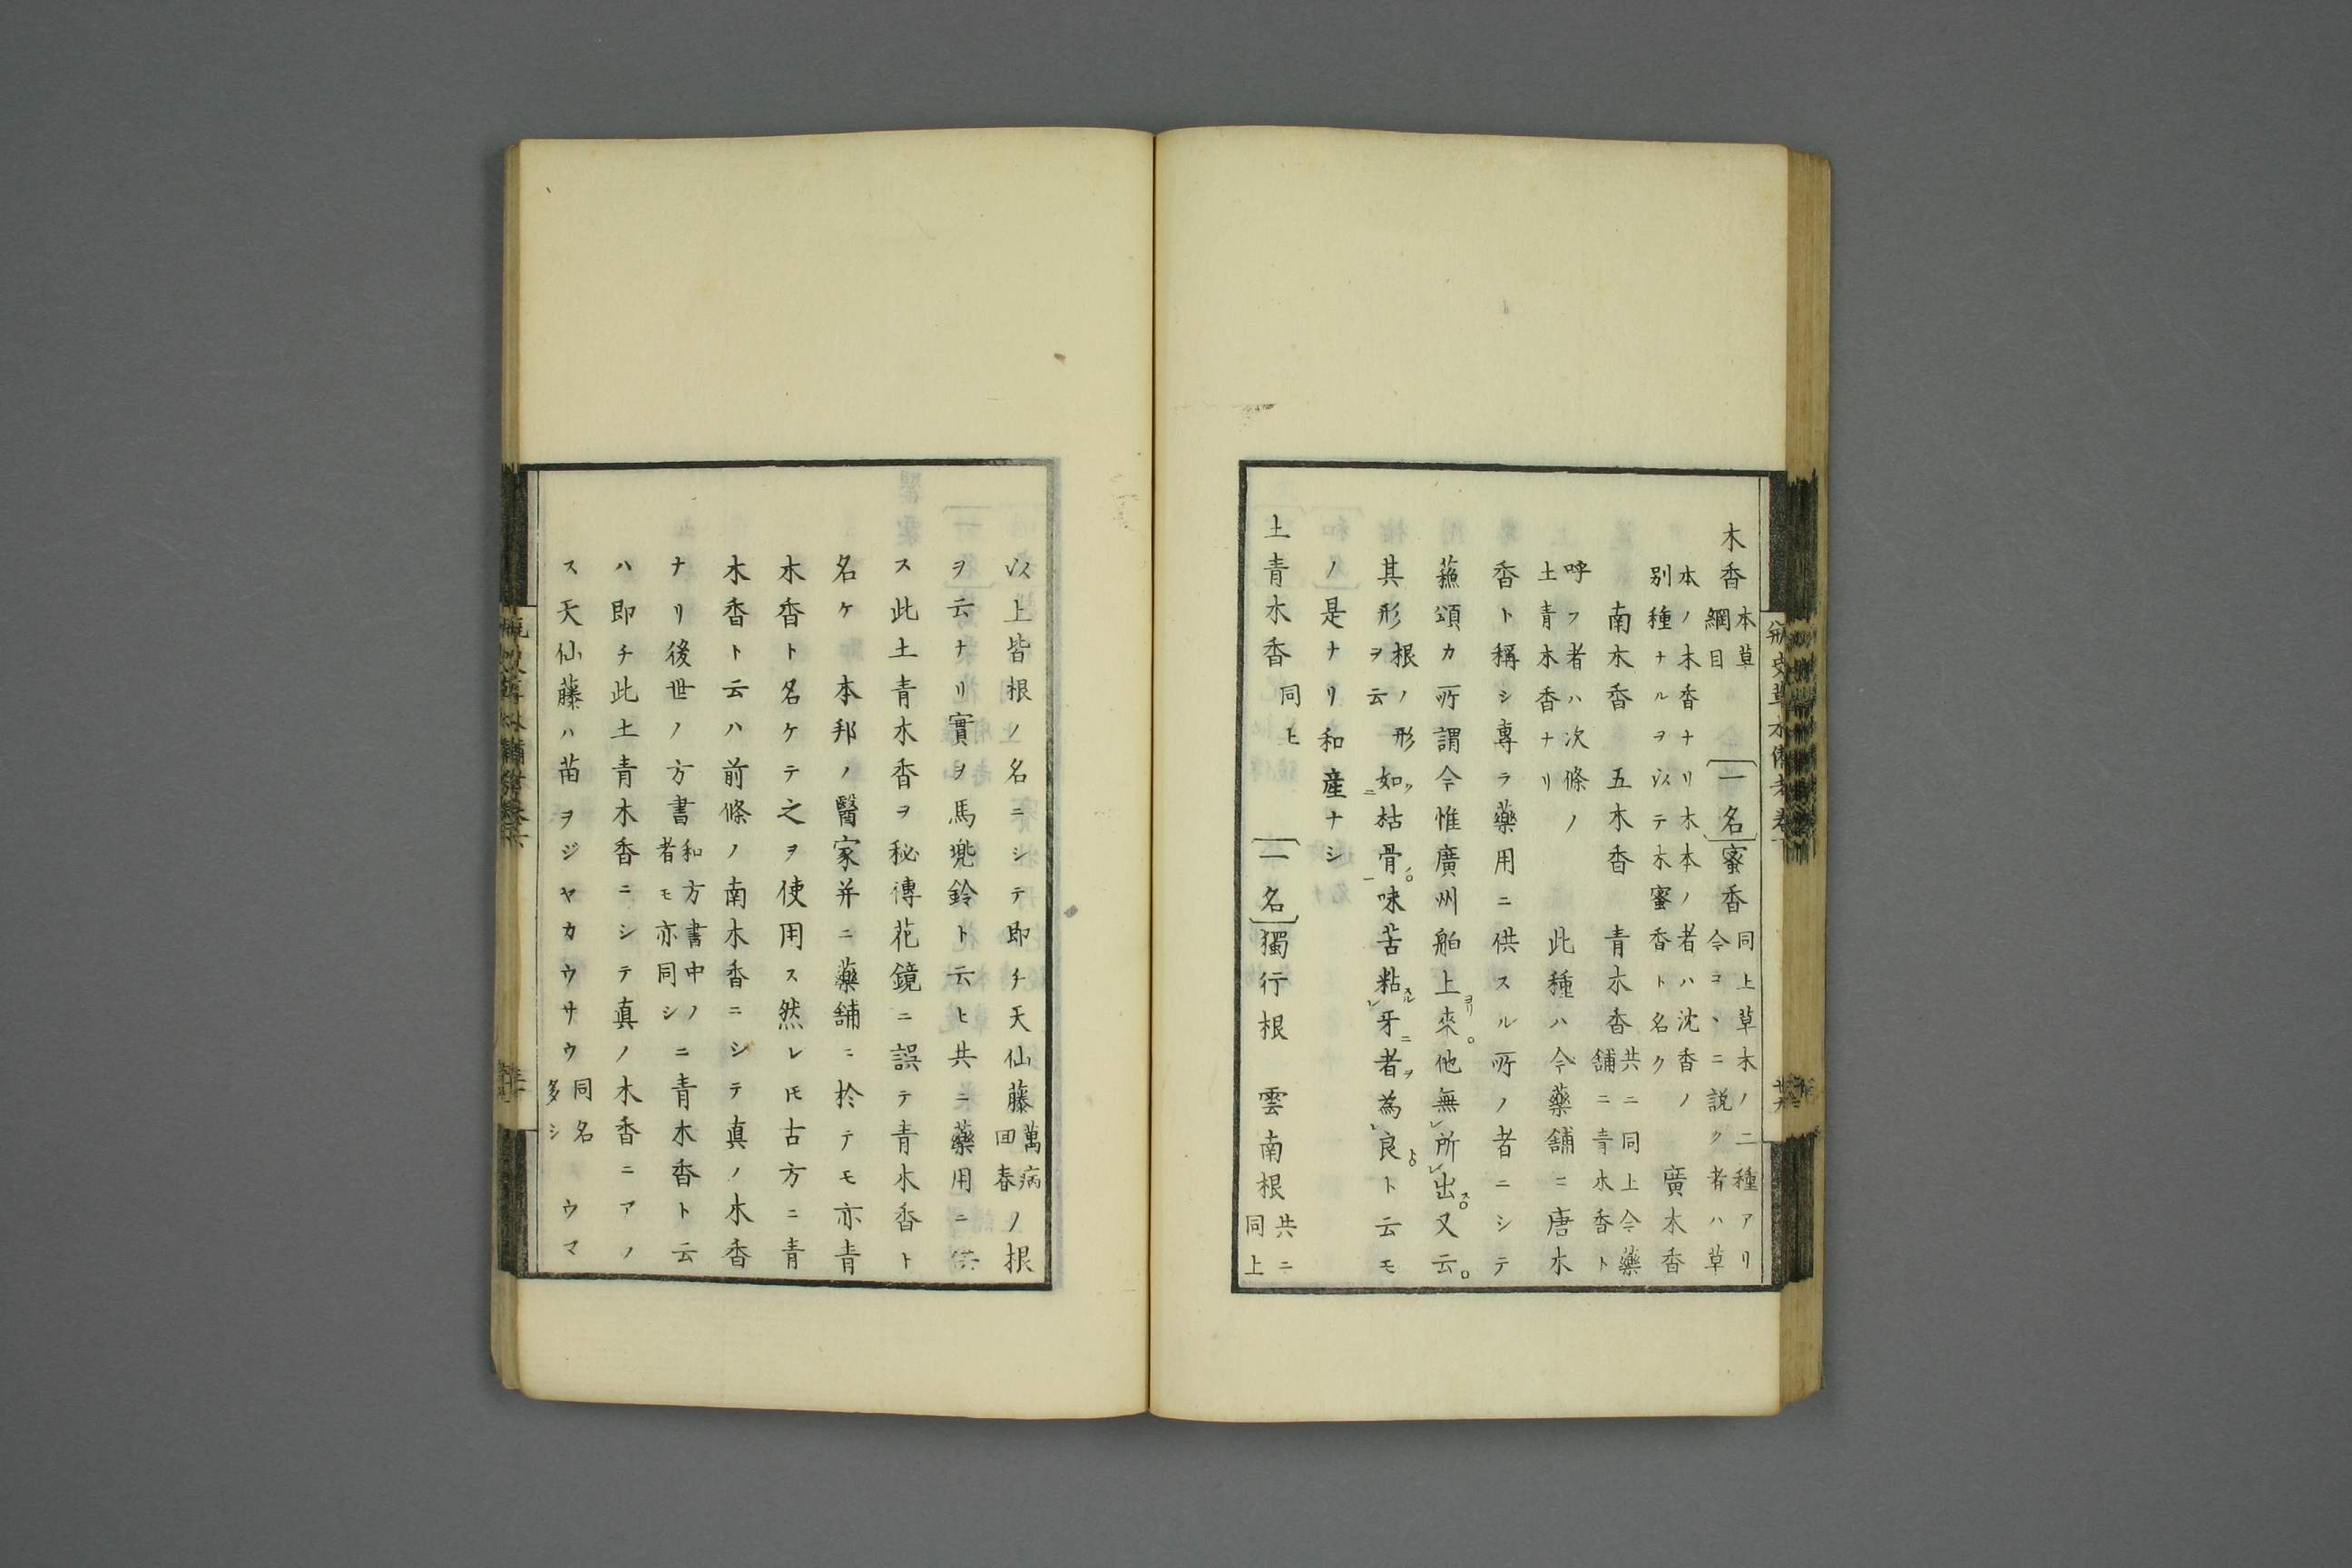 木香 本草綱目 [一名] 蜜香 同上草木ノ二種アリ今コヽニ説ク者ハ草
本ノ木香ナリ木本ノ者ハ沈香ノ別種ナルヲ以テ木蜜香ト名ク 廣木香
南木香 五木香 青木香 共ニ同上今藥舗ニ青木香ト
呼フ者ハ次條ノ土青木香ナリ 此種ハ今藥舗ニ唐木
香ト稱シ專ラ藥用ニ供スル所ノ者ニシテ
蘓頌カ所謂今惟廣州舶上來他無所出又云
其形根ノ形ヲ云如枯骨味苦粘牙者為良ト云モ
ノ是ナリ和産ナシ
土青木香 同上 [一名] 獨行根 雲南根 共ニ同上
以上皆根ノ名ニシテ即チ天仙藤萬病回春ノ根
ヲ云ナリ實ヲ馬兠鈴ト云ヒ共ニ藥用ニ供
ス此土青木香ヲ秘傳花鏡ニ誤テ青木香ト
名ケ本邦ノ醫家并ニ藥舗ニ於テモ亦青
木香ト名ケテ之ヲ使用ス然レㇳモ古方ニ青
木香ト云ハ前條ノ南木香ニシテ真ノ木香
ナリ後世ノ方書和方書中ノ者モ亦同シニ青木香ト云
ハ即チ此土青木香ニシテ真ノ木香ニアノ
ス天仙藤ハ苗ヲジヤカウサウ同名多シウマ